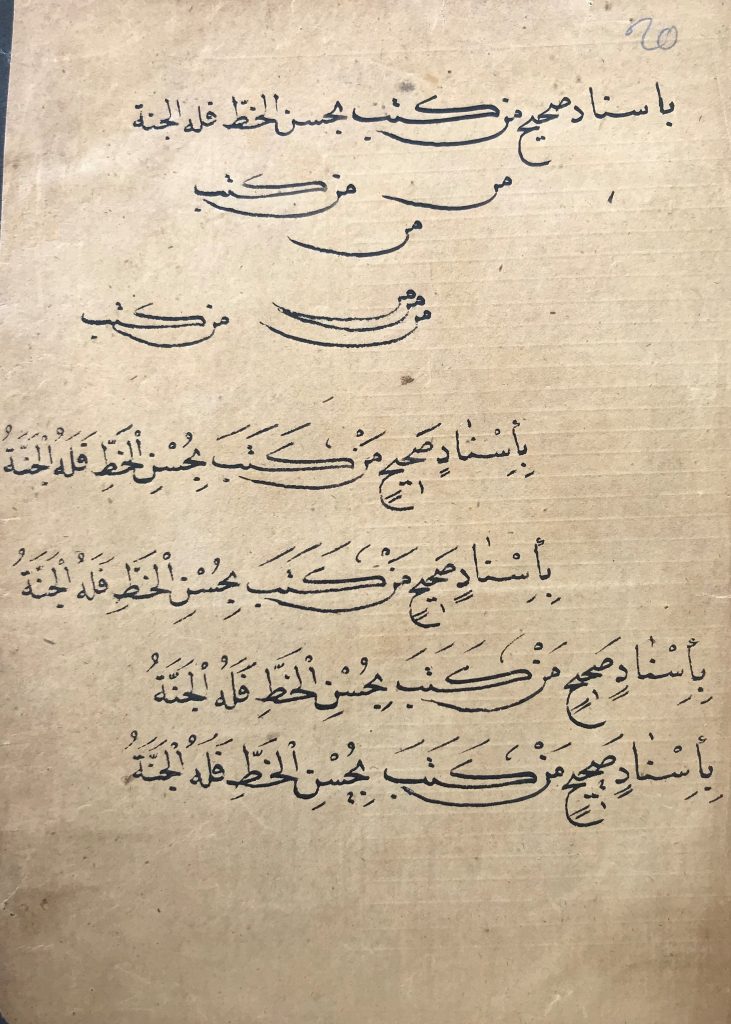 ٢٥
باسناد صحيح من كتب بحسن الخطّ فله الجنة
من من كتب
من
من
من
من من كتب
بِأَسِْنٰادٍ صَحِيحٍ مَنْ كَتَبَ بِحُسْنِ الْخَطِّ فَلَهُ الْجَنَّةُ
بِأَسِْنٰادٍ صَحِيحٍ مَنْ كَتَبَ بِحُسْنِ الْخَطِّ فَلَهُ الْجَنَّةُ
بِأَسِْنٰادٍ صَحِيحٍ مَنْ كَتَبَ بِحُسْنِ الْخَطِّ فَلَهُ الْجَنَّةُ
بِأَسِْنٰادٍ صَحِيحٍ مَنْ كَتَبَ بِحُسْنِ الْخَطِّ فَلَهُ الْجَنَّةُ